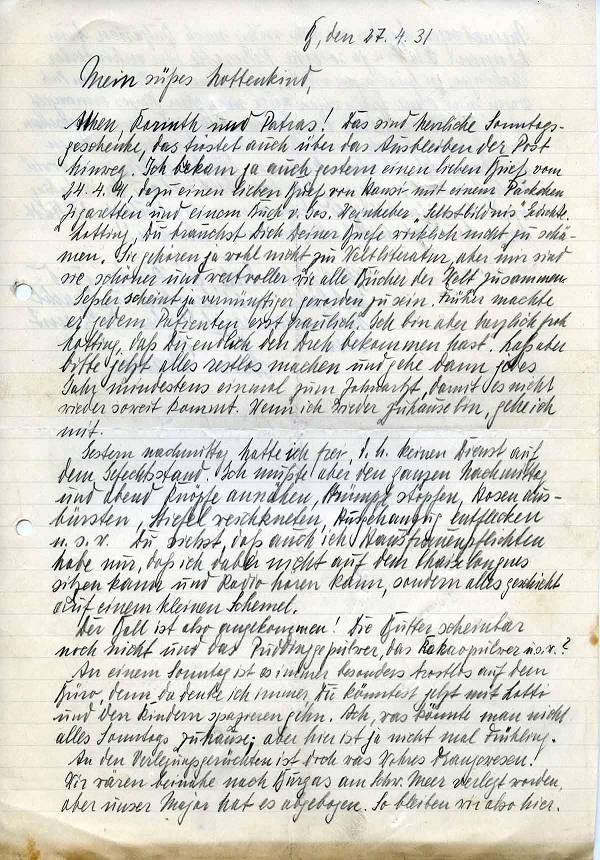 B, den 27.4.31
Mein süßes Lottenkind,
Athen, Korinth und Patras! Das sind herrliche Sonntags-
geschenke, das tröstet auch über das Ausbleiben der Post
hinweg. Ich bekam ja auch gestern einen lieben Brief vom
24.4.41, dazu einen lieben Brief von Hansi mit einem Päckchen
Zigaretten und einem Buch v. Jos. Weinheber „Selbstbildnis" Gedichte.
Lotting, Du brauchst Dich Deiner Briefe wirklich nicht zu schä-
men. Sie gehören ja wohl nicht zur Weltliteratur, aber mir sind
sie schöner und wertvoller wie alle Bücher der Welt zusammen.
scheint ja vernünftiger geworden zu sein. Früher machte
er jedem Patienten erst graulich. Ich bin aber herzlich froh
Lotting, daß Du endlich den Dreh bekommen hast. Laß aber
bitte jetzt alles restlos machen und gehe dann jedes
Jahr mindestens einmal zum Zahnarzt, damit es nicht
wieder soweit kommt. Wenn ich wieder zuhause bin, gehe ich
mit.
Gestern nachmittag hatte ich frei, d.h. keinen Dienst auf
dem Gefechtsstand. Ich mußte aber den ganzen Nachmittag
und Abend Knöpfe annähen, Strümpfe stopfen, Hosen aus-
bürsten, Stiefel Anzug entflecken
u.s.w. Du siehst, daß auch ich Hausfrauenpflichten
habe nur, daß ich dabei nicht auf dem Chaiselongues
sitzen kann und Radio hören kann, sondern alles geschieht
auf einem kleinen Schemel.
Der Ball ist also angekommen! Die Butter scheinbar
noch nicht und das Puddingpulver, das Kakaopulver u.s.w.?
An einem Sonntag ist es immer besonders trostlos auf dem
Büro, denn da denke ich immer, Du könntest jetzt mit Lotti
und den Kindern spazieren gehn. Ach, was könnte man nicht
alles Sonntags zuhause; aber hier ist ja nicht mal Frühling.
An den Verlegungsgerüchten ist doch was Wahres drangewesen!
Wir wären beinahe nach Burgas am Schw. Meer verlegt worden,
aber unser Major hat es abgebogen. So bleiben wir also hier.